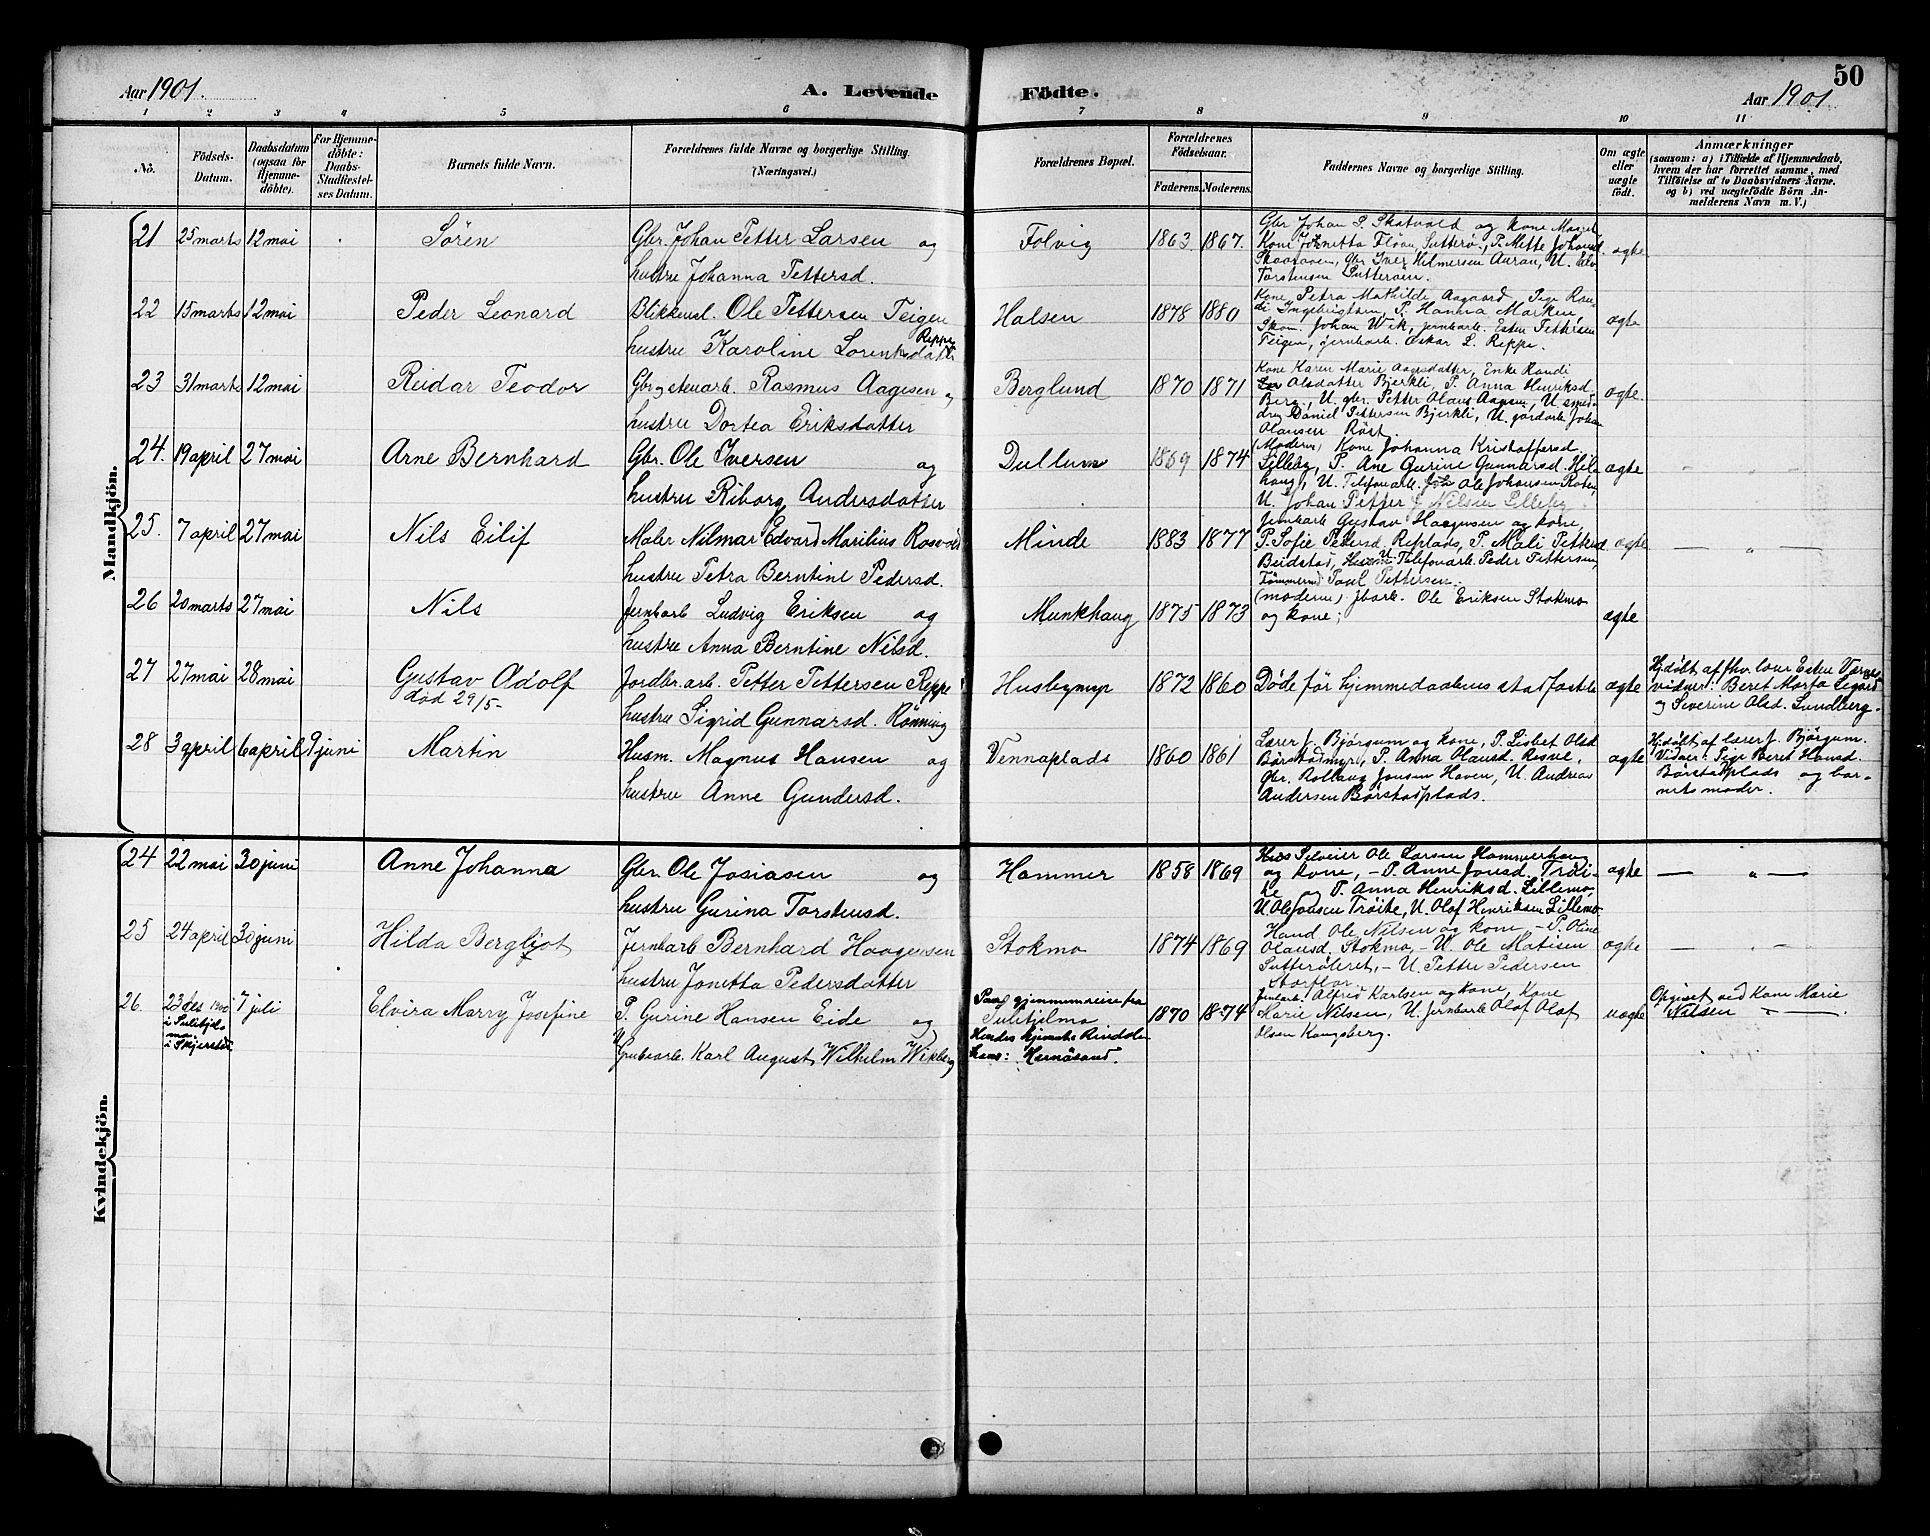 50
Aar 1901.
A. Levende Födte.
Aar 1901.
1 2 3 4 5 6 7 8 9 10 11
No.
Födsels-Datum.
Daabsdatum (ogsaa for Hjemme-döbte).
For Hjemme-döbte: Daabs-Stadfæstel-ses Datum.
Barnets fulde Navn.
Forældrenes fulde Navne og borgerlige Stilling.
(Næringsvei.)
Forældrenes Bopæl.
Forældrenes Födselsaar.
Faderens. Moderens.
Faddernes Navne og borgerlige Stilling.
Om ægte eller uægte födt.
Anmærkninger
(saasom: a) i Tilfælde af Hjemmedaab, hvem der har forrettet samme, med Tilföielse af to Daabsvidners Navne, og b) ved uægtefödte Börn An-melderens Navn m. V.)
Mandkjön.
21 25 marts 12 mai Sören
Gbr. Johan Petter Larsen og
hustru Johanna Pettersd.
Folvig 1863 1867.
Gbr Johan P. Skatvold og kone
Kone Jonetta Flöan, Sutterö, P. Mette
Iver Hilmersen Auran, U.
Torstensen Sutteröen.
ægte
22 15 marts 12 mai Peder Leonard
Blikkensl. Ole Pettersen Teigen
hustru Karoline Lorentsdatter Reppe
Halsen 1878 1880
Kone Petra Mathilde Aagaard Pige
Ingebrigtsen, P. Hanna Marken,
Skom. Johan Wik, jernbarb. Esten Pettersen
Teigen, jernbarb. Oskar L. Reppe.
ægte
23 31 marts 12 mai Reidar Teodor
Gbr og stenarb. Rasmus Aagesen og
hustru Dortea Eriksdatter
Berglund 1870 1871
Kone Karen Marie Aagesdatter, Enke Randi
Olsdatter Bjerkli, P. Anna Henriksd.
Berg, U. gbr. Petter Olaus Aagesen, U. smed-
dreng Daniel Pettersen Bjerkli, U. gårdarb Johan
Olausen Röst
ægte.
24. 19 april 27 mai Arne Bernhard
Gbr. Ole Iversen og
hustru Riborg Andersdatter
Dullum 1869 1874
(Moderen) Kone Johanna Kristoffersd.
Lilleby, P. Ane Gurine Gunnarsd. Hel-
haug, U. Telefonarb. Ole Johansen
U. Johan Petter Nilsen Lilleby.
ægte
25. 7 april 27 mai Nils Eilif
Maler Nilmar Edvard Marilius Rosvold
hustru Petra Berntine Pedersd.
Minde 1883 1877
Jernbarb Gustav Haagensen og kone,
P. Sofie Pedersd. Replads, P. Mali Pettersd.
Beidstad, U. Telefonarb. Peder Pettersen,
Tömmermd Paul Pettersen.
ægte — „ —
26 20 marts 27 mai Nils
Jernbarb Ludvig Eriksen og
hustru Anna Berntine Nilsd.
Munkhaug 1875 1873
(moderen) jbarb. Ole Eriksen Stokmo
og kone;
ægte
27 27 mai 28 mai Gustav Adolf
död 29/5-
Jordbr.arb. Petter Pettersen Reppe
hustru Sigrid Gunnarsd. Rönning
Husbymyr 1872 1860
Döde för hjemmedaabens stadfæstelse
ægte
Hj.döbt af fhv. lærer Esten
vidner: Beret Marta
og Severine Olsd. Lundberg.
28 3 april 6 april 9 juni Martin
Husm. Magnus Hansen og
hustru Anne Gundersd.
Vennaplads 1860 1861
Lærer J. Bjørgum og kone, P. Lisbet Olsd
Børstadmyr, P. Anna Olausd.
Gbr. Rollaug Jonsen Haven, U. Andreas
Andersen Børstadplads.
ægte
Hj.döbt af lærer J. Bjørgum.
Vidner: Pige Beret Hansd.
Børstadplads og bar-
nets moder.
Kvindekjön.
24 22 mai 30 juni Anne Johanna
Gbr. Ole Josiasen og
hustru Gurina Torstensd.
Hammer 1858 1869
Ole Larsen Hammerhaug
og kone, - P. Anne Jonsd. Tröi-
te og P. Anna Henriksd. Lillemo,
U. Ole Jonsen Tröite, U. Olof Henriksen Lillemo
ægte — „ —
25 24 april 30 juni Hilda Bergljot
Jernbarb Bernhard Haagensen
hustru Jonetta Pedersdatter
Stokmo 1874 1869
Hand. Ole Nilsen og kone, - P. Oline
Olausd. Stokmo, - U. Ole Matisen
Sutteröleret, - U. Petter Pedersen
Storflor
ægte — „ —
26. 23 des 1900 7 juli Elvira Marry Josefine
i Sulitjel-
ma
i Skjerstad
P. Gurine Hansen Eide og
U. Grubearb. Karl August Wilhelm Wikberg
Paa gjennemreise fra
Sulitjelma
Hendes hjemst: Rindalen
Hans: Hernösand.
1870 1874
Jernbarb. Alfred Karlsen og kone, Kone
Marie Nilsen, U. jernbarb Olof Olof
Olsen Kongsberg.
uægte
Opgivet ved Kone Marie
Nilsen — „ —